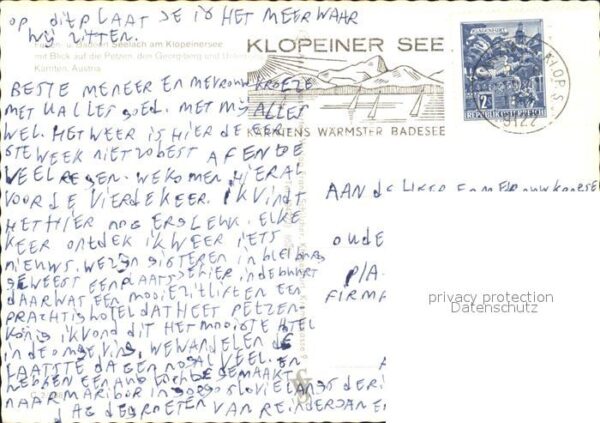 OP DIE PLAATJE IS HET MEER WAAR
WIJ ZITTEN.
Ferien- u. Badeort Seelach am Klopeinersee
mit Blick auf die Petzen, den Georgiberg und
Kärnten, Austria
KLOPEINER SEE
KÄRNTENS WÄRMSTER BADESEE
REPUBLIK ÖSTERREICH
BESTE MENEER EN MEVROUW KROEZE
MET U ALLES GOED. MET MIJ ALLES
WEL. HET WEER IS HIER DE EER
STE WEEK NIET ZO BEST AF EN DE
VEEL REGEN. WE KOMEN HIER AL
VOOR DE VIERDE KEER. IK VINDT
HET HIER NOG ERG LEUK. ELKE
KEER ONTDEK IK WEER IETS
NIEUWS. WE ZIJN GISTEREN IN BLEIBURG
GEWEEST EEN PLAATSJE HIER IN DE BUURT
DAAR WAS EEN MOOIE ZITLIFT EN EEN
PRACHTIG HOTEL DAT HEET PETZEN-
KÖNIG IK VOND DIT HET MOOISTE HOTEL
IN DE OMGEVING. WE WANDELEN DE
LAATSTE DAGEN NOGAL VEEL. EN
HEBBEN EEN TOCHT GEMAAKT
NAAR MARIBOR IN JOEGOSLAVIE LANGS DE
DAG DE GROETEN VAN REINDER JAN
AAN DE HEER EN MEVROUW
OUDE
P/A
FIRMA
privacy protection
Datenschutz